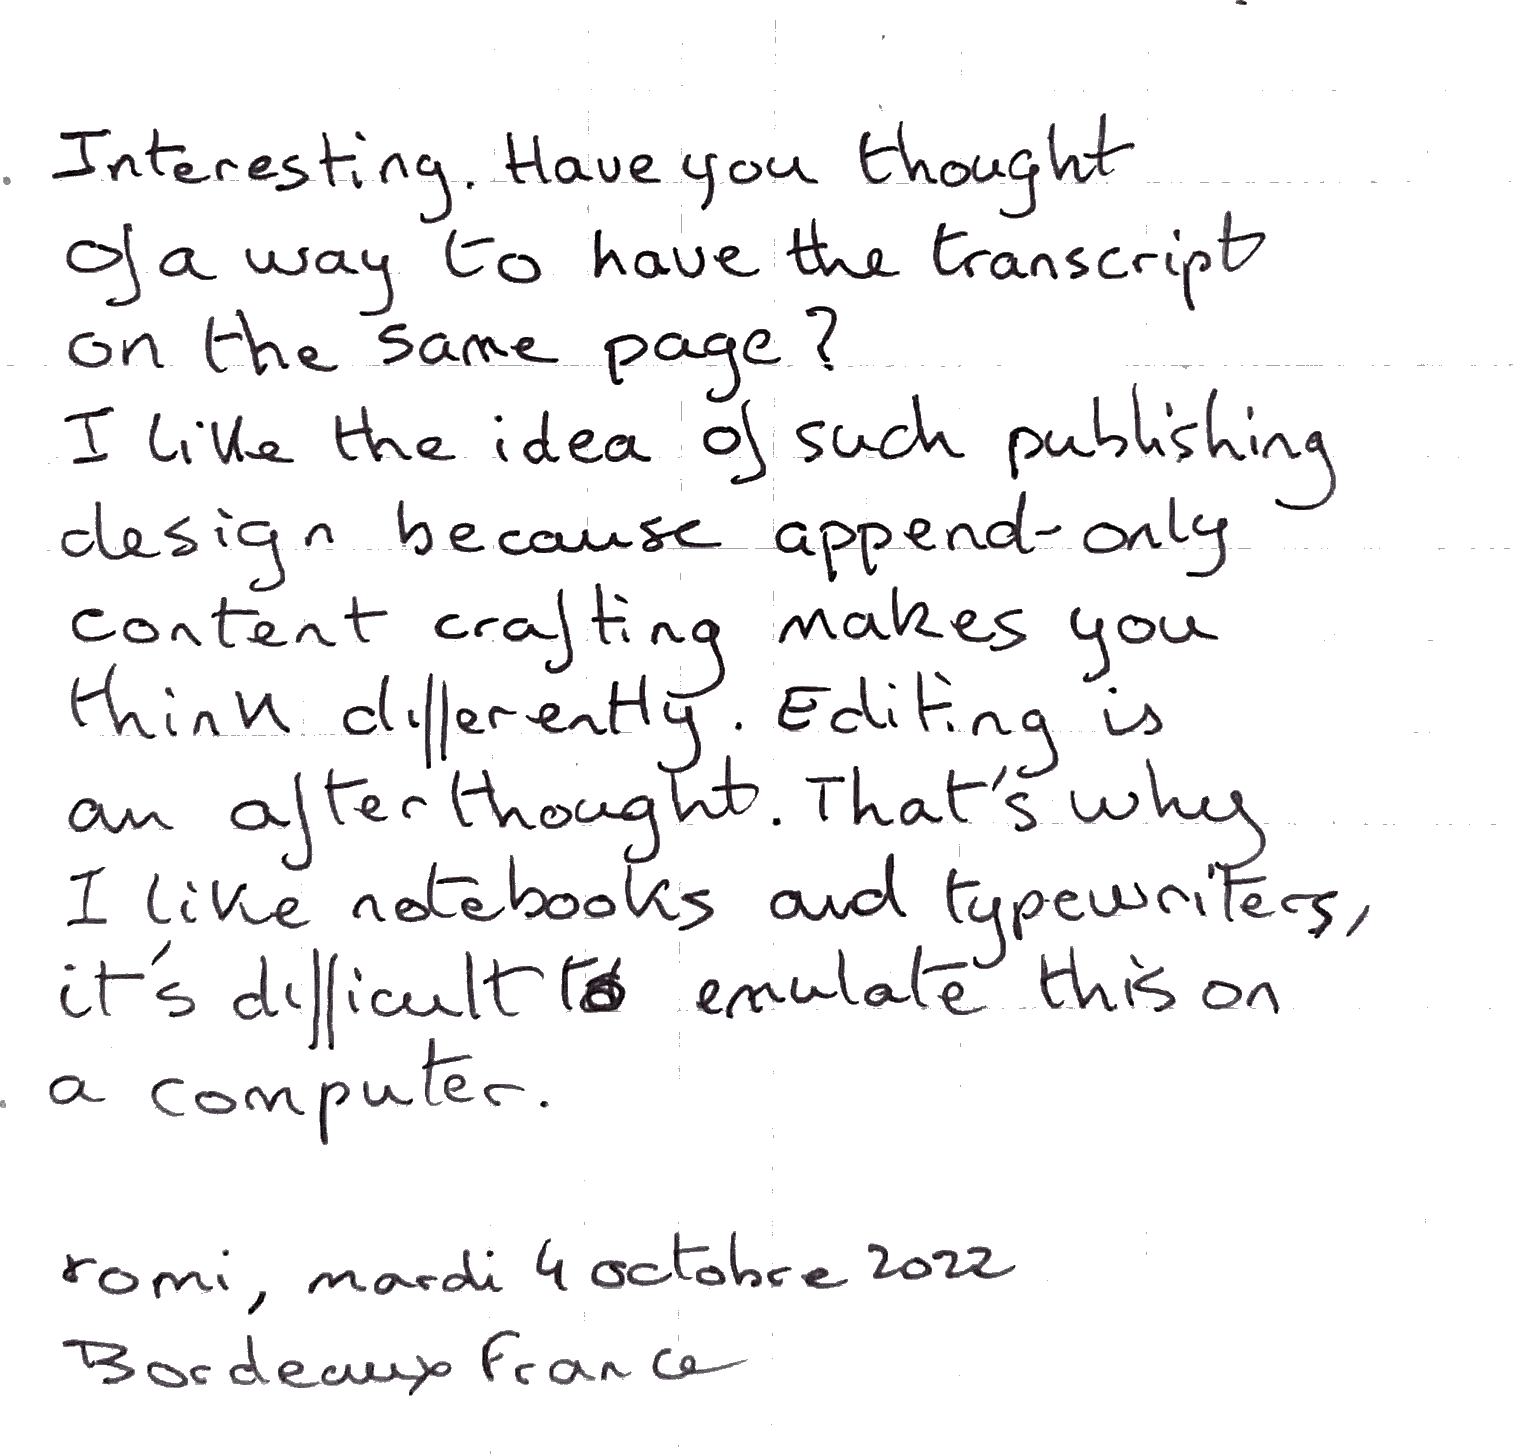 Interesting. Have you thought
of a way to have the transcript
on the same page?
I like the idea of such publishing
design because append-only
content crafting makes you
think differently. Editing is
an afterthought. That's why
I like notebooks and typewriters,
it's difficult to emulate this on
a computer.
romi, mardi 4 octobre 2022
Bordeaux France